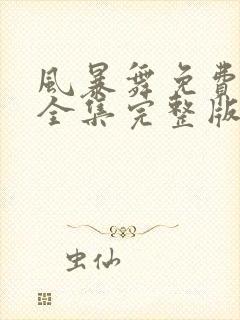 風暴舞免費
全集完整版
虫仙